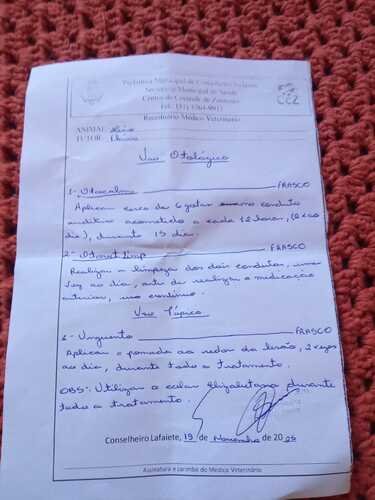 Prefeitura Municipal de Conselheiro Lafaiete
Secretaria Municipal de Saúde
Centro de Controle de Zoonoses
CCZ
Receituário Médico Veterinário
ANIMAL:
TUTOR:
Uso Otológico
1- Otocalm FRASCO
Aplicar cerca de 6 gotas no conduto
auditivo acometido a cada 12 horas, (2x ao
dia), durante 15 dias.
2- FRASCO
Realizar a limpeza dos dois condutos, uma
vez ao dia, antes de realizar a medicação
anterior, uso contínuo.
Uso Tópico
3- Unguento FRASCO
Aplicar a pomada ao redor da lesão, 2 vezes
ao dia, durante todo o tratamento.
OBS: Utilizar o colar Elizabetano durante
todo o tratamento.
Conselheiro Lafaiete, 19 de Novembro de 2025
Assinatura e carimbo do Médico Veterinário